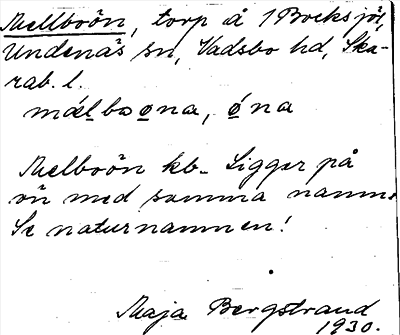 Mellboön, torp å 1 Bocksjö,
Undenäs sn, Vadsbo hd, Ska-
rab. l.
mælboona, óna
Mellboön kb. Ligger på
ön med samma namn.
Se naturnamnen!
Maja Bergstrand
1930.